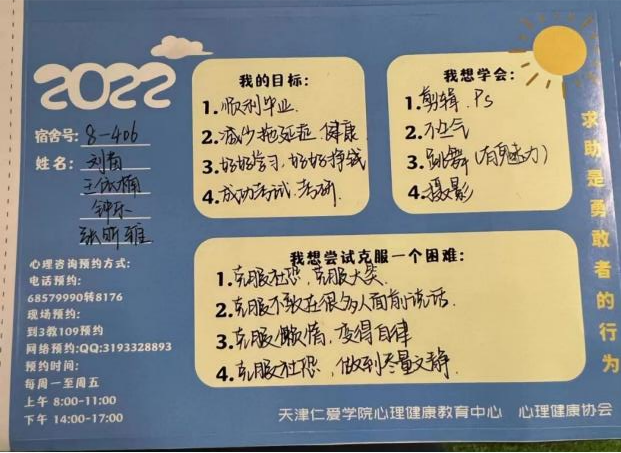 2022
宿舍号: 8-406
姓名: 刘茜
钟乐
张昕雅
心理咨询预约方式:
电话预约:
68579990转8176
现场预约:
到3教109预约
网络预约:QQ:3193328893
预约时间:
每周一至周五
上午 8:00-11:00
下午 14:00-17:00
我的目标:
1.顺利毕业.
2.减少拖延症,健康
3.好好学习,好好挣钱
4.成功考试.考研.
我想学会:
1.剪辑.Ps
2.不生气
3.跳舞(有魅力)
4.摄影
我想尝试克服一个困难:
1.克服社恐,克服大笑.
2.克服不敢在很多人面前说话.
3.克服懒惰,变得自律
4.克服社恐,做到尽量文静.
求助是勇敢者的行为
天津仁爱学院心理健康教育中心 心理健康协会